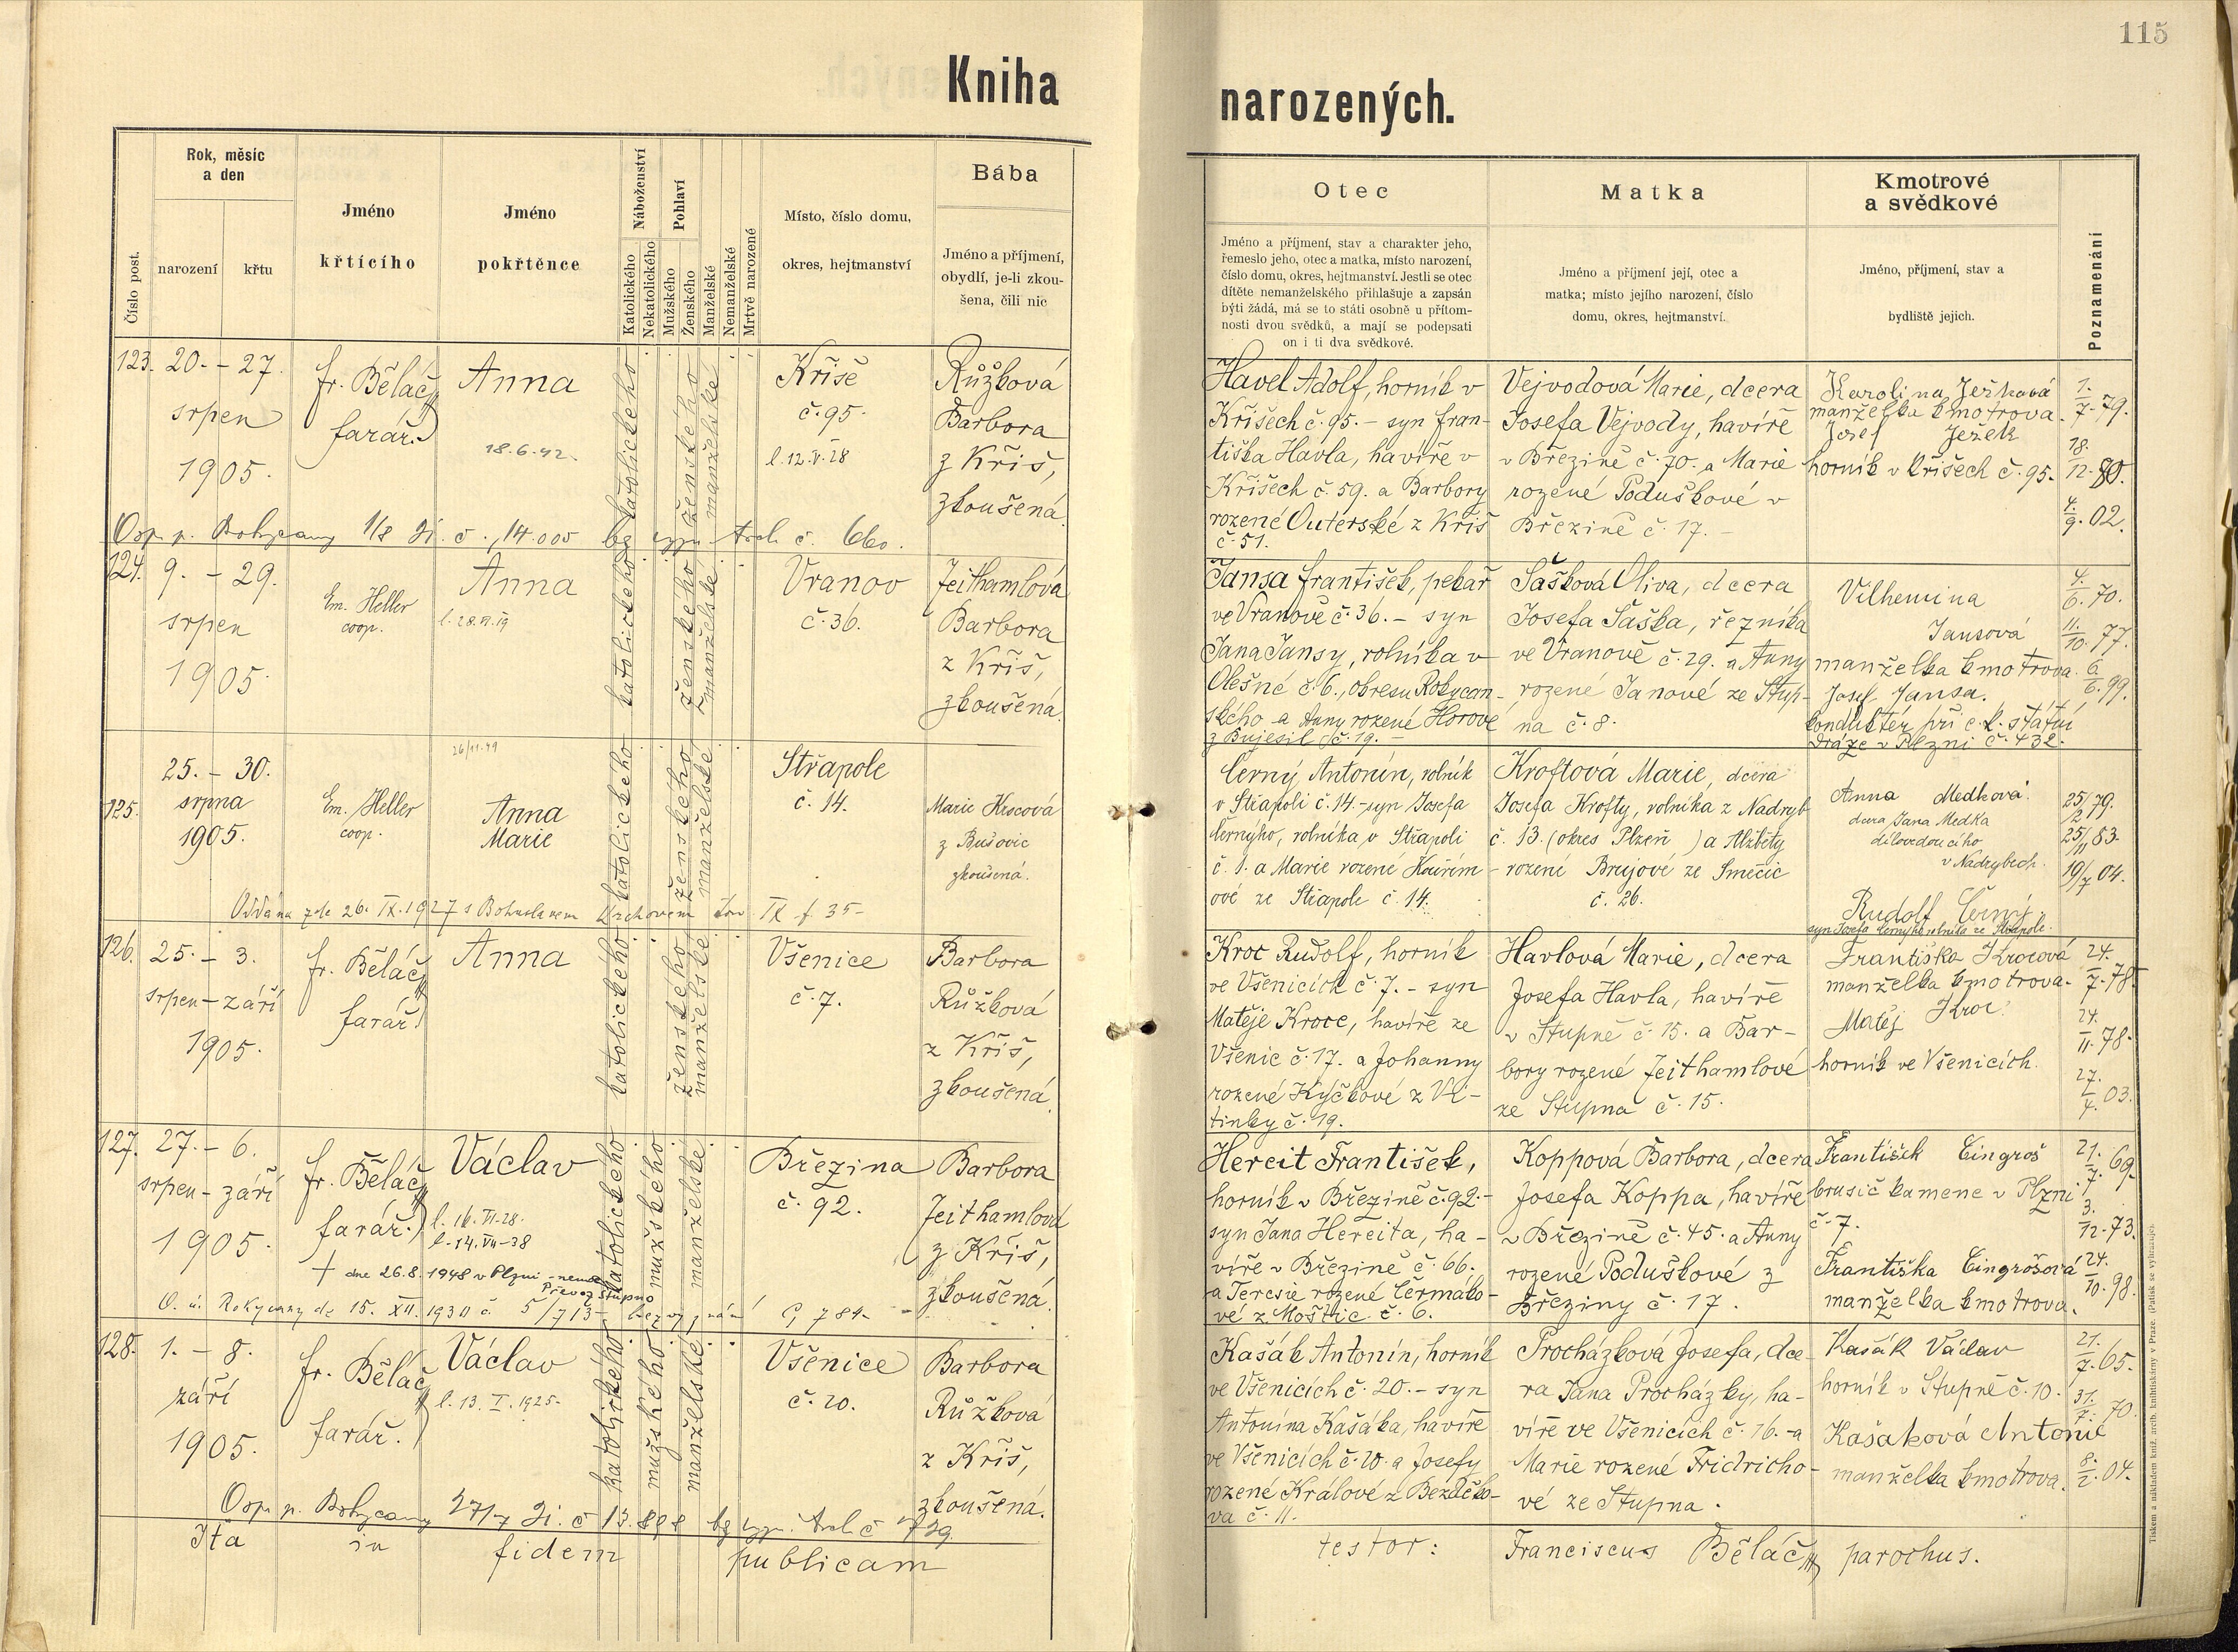 115
Kniha
narozených.
Číslo post.
Rok, měsíc
a den
narození
křtu
Jméno
křtícího
Jméno
pokřtěnce
Náboženství
Katolického
Nekatolického
Pohlaví
Mužského
Ženského
Manželské
Nemanželské
Mrtvě narozené
Místo, číslo domu,
okres, hejtmanství
Bába
Jméno a příjmení,
obydlí, je-li zkou-
šena, čili nic
Otec
Jméno a příjmení, stav a charakter jeho,
řemeslo jeho, otec a matka, místo narození,
číslo domu, okres, hejtmanství. Jestli se otec
dítěte nemanželského přihlašuje a zapsán
býti žádá, má se to státi osobně u přítom-
nosti dvou svědků, a mají se podepsati
on i ti dva svědkové.
Matka
Jméno a příjmení její, otec a
matka; místo jejího narození, číslo
domu, okres, hejtmanství.
Kmotrové
a svědkové
Jméno, příjmení, stav a
bydliště jejich.
Poznamenání
123. 20. - 27.
srpen
1905.
fr. Běláč
farář.
Anna
18.6.42.
katolického
ženského
manželské
Křiše
č. 95.
l. 12.V.28
Růžková
Barbora
z Kříš,
zkoušená.
Havel Adolf, horník v
Křišech č. 95. - syn Fran-
tiška Havla, havíře v
Křišech č. 59. a Barbory
rozené Outerské z Kříš
č. 51.
Vejvodová Marie, dcera
Josefa Vejvody, havíře
v Březině č. 70. a Marie
rozené Poduškové v
Březině č. 17. -
Karolina Ježková
manželka kmotrova.
Josef Ježek
horník v Křišech č. 95.
1./7. 79.
18./12. 80.
4./9. 02.
124. 9. - 29.
srpen
1905.
Em. Heller
coop.
Anna
katolického
ženského
manželské
Vranov
č. 36.
Jeithamlová
Barbora
z Kříš,
zkoušená.
Jansa František, pekař
ve Vranově č. 36. - syn
Jana Jansy, rolníka v
Olešné č. 6., okresu Rokycan-
ského a Anny rozené Horové
z Bujesil č. 19. -
Šašková Oliva, dcera
Josefa Šaška, řezníka
ve Vranově č. 29. a Anny
rozené Janové ze Stup-
na č. 8.
Vilhemina
Jansová
manželka kmotrova.
Josef Jansa.
konduktér při c. k. státní
dráze v Plzni č. 432.
4./6. 70.
11./10. 77.
6./6. 99.
125.
25. - 30.
srpna
1905.
Em. Heller
coop.
26/11.49
Anna
Marie
katolického
ženského
manželské
Střapole
č. 14.
Marie Krscová
z Bušovic
zkoušená.
Oddána zde 26. IX. 1927 s Bohuslavem
Černý Antonín, rolník
v Střapoli č. 14. - syn Josefa
Černýho, rolníka v Střapoli
č. 1. a Marie rozené Kouřím-
ové ze Střapole č. 14.
Kroftová Marie, dcera
Josefa Krofty, rolníka z Nadryb
č. 13. (okres Plzeň ) a Alžběty
rozené Brujové ze Smečic
č. 26.
Anna Medková.
dcera Jana Medka
dílovedoucího
v Nadrybech.
Rudolf Černý
syn Josefa Černýho rolníka ze Střapole.
25/2 79.
25/11 83.
19/7 04.
126. 25. - 3.
srpen - září
1905.
fr. Běláč
farář.
Anna
katolického
ženského
manželské
Všenice
č. 7.
Barbora
Růžková
z Kříš,
zkoušená.
Kroc Rudolf, horník
ve Všenicích č. 7. - syn
Matěje Kroce, havíře ze
Všenic č. 17. a Johanny
rozené Kyčkové z Vi-
tinky č. 19.
Havlová Marie, dcera
Josefa Havla, havíře
v Stupně č. 15. a Bar-
bory rozené Jeithamlové
ze Stupna č. 15.
Františka Krocová
manželka kmotrova.
Matěj Kroc
horník ve Všenicích.
24./7. 78.
24./11. 78.
27./4. 03.
127. 27. - 6.
srpen - září
1905.
fr. Běláč
farář.
Václav
l. 16.VI-28.
l. 14.VII-38
katolického
mužského
manželské
Březina
č. 92.
Barbora
Jeithamlová
z Kříš,
zkoušená.
† dne 26.8.1948 v Plzni -
Převoz Stupno
Hereit František,
horník v Březině č. 92. -
syn Jana Hereita, ha-
víře v Březině č. 66.
a Teresie rozené Čermáko-
vé z Moštic č. 6.
Koppová Barbora, dcera
Josefa Koppa, havíře
v Březině č. 45. a Anny
rozené Poduškové z
Březiny č. 17.
František Cingroš
brusič kamene v Plzni
č. 7.
Františka Cingrošová
manželka kmotrova.
21./7. 69.
3./12. 73.
24./10. 98.
128. 1. - 8.
září
1905.
fr. Běláč
farář.
Václav
l. 13. I. 1925.
katolického
mužského
manželské
Všenice
č. 20.
Barbora
Růžková
z Kříš,
zkoušená.
Kašák Antonín, horník
ve Všenicích č. 20. - syn
Antonína Kašáka, havíře
ve Všenicích č. 20. a Josefy
rozené Králové z Bezděko-
va č. 11.
Procházková Josefa, dce-
ra Jana Procházky, ha-
víře ve Všenicích č. 16. - a
Marie rozené Fridricho-
vé ze Stupna.
Kašák Václav
horník v Stupně č. 10.
Kašáková Antonie
manželka kmotrova.
21./7. 65.
31./7. 70.
8./2. 04.
Ita in fidem publicam
testor: Franciscus Běláč, parochus.
Tiskem a nákladem kníž. arcib. knihtiskárny v Praze. (Patisk se vyhrazuje).